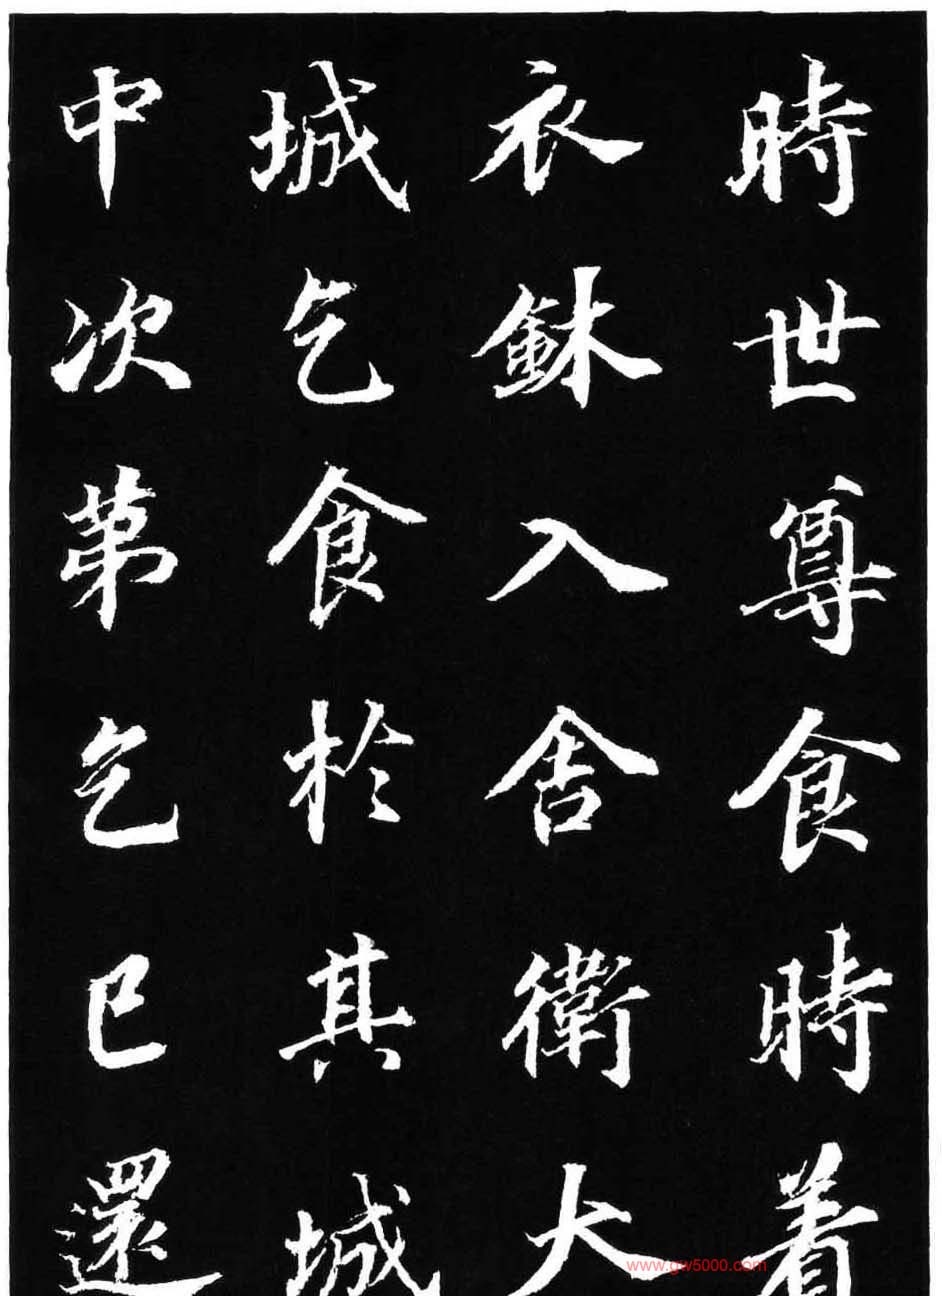 時世尊食時着
衣鉢入舍衛大
城乞食於其城
中次苐乞已還
www.gw5000.com